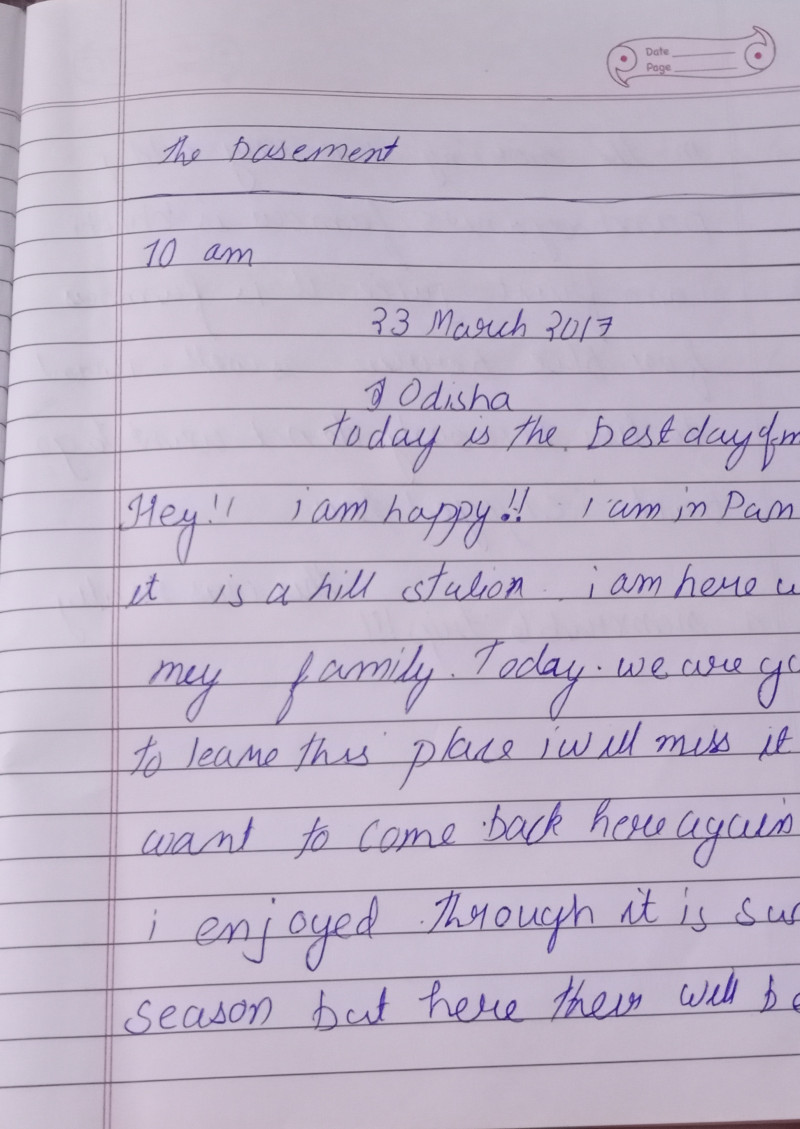 Date
Page
the basement
10 am
23 March 2017
Odisha
today is the best day of m
Hey!! i am happy!! i am in Pan
it is a hill station. i am here w
my family. Today. we are go
to leave this place i will miss it
want to come back here again
i enjoyed through it is su
season but here their will be